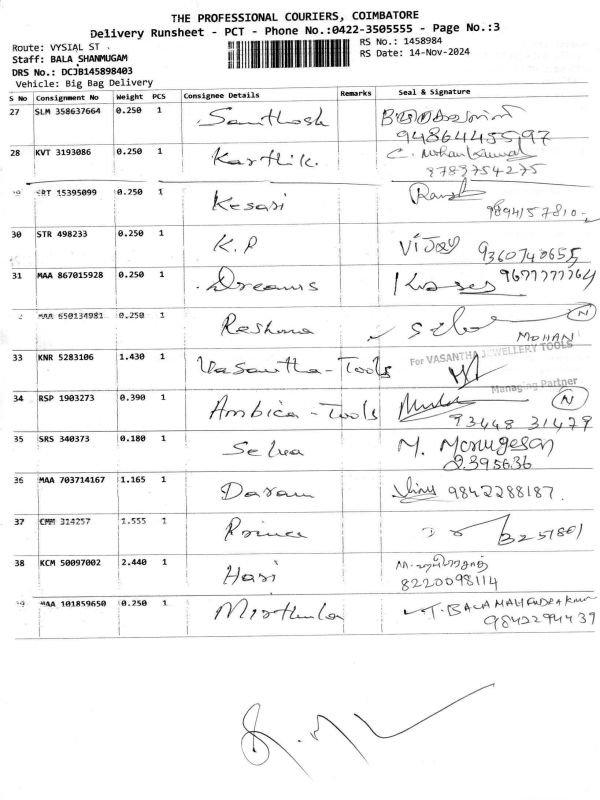 THE PROFESSIONAL COURIERS, COIMBATORE
Delivery Runsheet - PCT - Phone No.:0422-3505555 - Page No.:3
Route: VYSIAL ST .
RS No.: 1458984
Staff: BALA SHANMUGAM
RS Date: 14-Nov-2024
DRS No.: DCJB145898403
Vehicle: Big Bag Delivery
S No Consignment No Weight PCS Consignee Details Remarks Seal & Signature
27 SLM 358637664 0.250 1 Santhosh
9486445597
28 KVT 3193086 0.250 1 Karthik. C. Mohan Kumar
8783754275
29 SRT 15395099 0.250 1 Kesari
9894157810
30 STR 498233 0.250 1 K.P VIJAY 9360740655
31 MAA 867015928 0.250 1 Dreams 9677777764
MAA 650134981 0.250 1 Reshma N
MOHAN
33 KNR 5283106 1.430 1 Vasantha-Tools For VASANTHA JEWELLERY TOOLS
Managing Partner
34 RSP 1903273 0.390 1 Ambica-Tools N
93448 31479
35 SRS 340373 0.180 1 Selva M. Morugesan
2395636
36 MAA 703714167 1.165 1 9842288187.
37 CMM 314257 1.555 1 Prince
38 KCM 50097002 2.440 1 Hari
8220098114
39 MAA 101859650 0.250 1 Mirthula T. BALAMAHENDRAKUMAR
9842294439